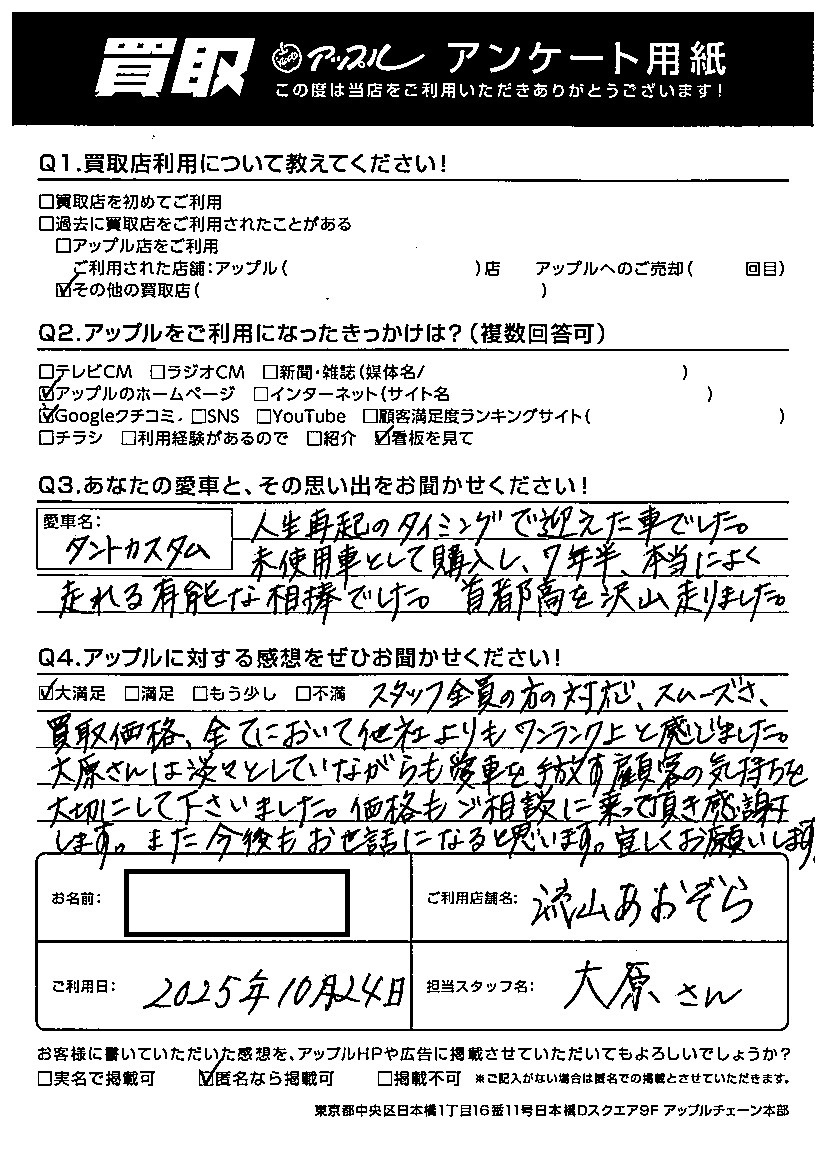 買取 アップル アンケート用紙
この度は当店をご利用いただきありがとうございます!
Q1.買取店利用について教えてください!
□買取店を初めてご利用
□過去に買取店をご利用されたことがある
□アップル店をご利用
ご利用された店舗:アップル( )店 アップルへのご売却( 回目)
☑その他の買取店( )
Q2.アップルをご利用になったきっかけは?(複数回答可)
□テレビCM □ラジオCM □新聞・雑誌(媒体名/ )
☑アップルのホームページ □インターネット(サイト名 )
☑Googleクチコミ □SNS □YouTube □顧客満足度ランキングサイト( )
□チラシ □利用経験があるので □紹介 ☑看板を見て
Q3.あなたの愛車と、その思い出をお聞かせください!
愛車名:
タントカスタム
人生再起のタイミングで迎えた車でした。
未使用車として購入し、7年半、本当によく
走れる有能な相棒でした。 首都高を沢山走りました。
Q4.アップルに対する感想をぜひお聞かせください!
☑大満足 □満足 □もう少し □不満 スタッフ全員の方の対応、スムーズさ、
買取価格、全てにおいて他社よりもワンランク上と感じました。
大原さんは淡々としていながらも愛車を手放す顧客の気持ちを
大切にして下さいました。価格もご相談に乗って頂き感謝
します。また今後もお世話になると思います。宜しくお願いします
お名前:
ご利用店舗名: 流山あおぞら
ご利用日: 2025年10月24日
担当スタッフ名: 大原さん
お客様に書いていただいた感想を、アップルHPや広告に掲載させていただいてもよろしいでしょうか?
□実名で掲載可 ☑匿名なら掲載可 □掲載不可 ※ご記入がない場合は匿名での掲載とさせていただきます。
東京都中央区日本橋1丁目16番11号日本橋Dスクエア9F アップルチェーン本部